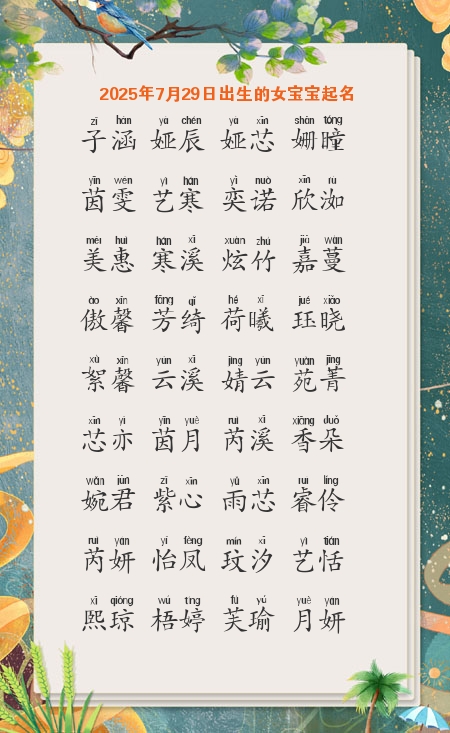 2025年7月29日出生的女宝宝起名
zǐ hán yà chén yà xīn shān tóng
子涵 娅辰 娅芯 姗曈
yīn wén yì hán yì nuò xīn rù
茵雯 艺寒 奕诺 欣洳
měi huì hán xī xuàn zhú jiā wàn
美惠 寒溪 炫竹 嘉蔓
ào xīn fāng qǐ hé xī jué xiǎo
傲馨 芳绮 荷曦 珏晓
xù xīn yún xī jìng yún yuàn jīng
絮馨 云溪 婧云 苑菁
xīn yì yīn yuè ruì xī xiāng duǒ
芯亦 茵月 芮溪 香朵
wǎn jūn zǐ xīn yǔ xīn ruì líng
婉君 紫心 雨芯 睿伶
ruì yán yí fèng mín xī yì tián
芮妍 怡凤 玟汐 艺恬
xī qióng wú tíng fú yú yuè yán
熙琼 梧婷 芙瑜 月妍